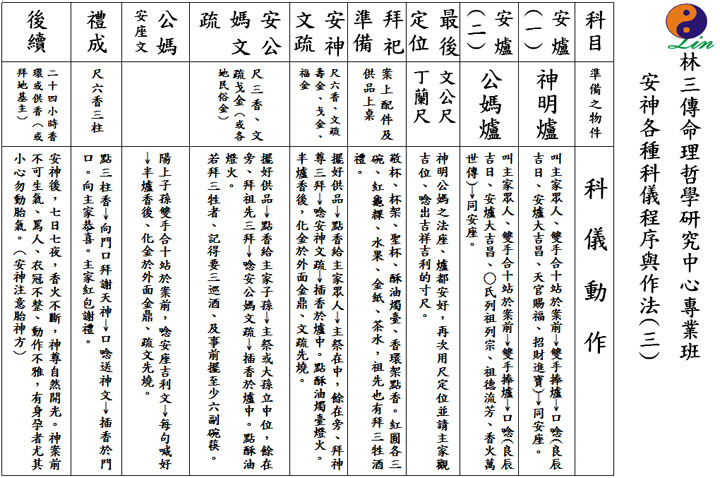 Lin
林三傳命理哲學研究中心專業班
安神各種科儀程序與作法(三)
科目
準備之物件
科儀動作
安爐
(一)
神明爐
叫主家眾人、雙手合十站於案前→雙手捧爐→口唸(良辰
吉日、安爐大吉昌、天官賜福、招財進寶)→同安座。
安爐
(二)
公媽爐
叫主家眾人、雙手合十站於案前→雙手捧爐→口唸(良辰
吉日、安爐大吉昌、○氏列祖列宗、祖德流芳、香火萬
世傳)→同安座。
最後
定位
文公尺
丁蘭尺
神明公媽之法座、爐都安好，再次用尺定位並請主家觀
吉位、唸出吉祥吉利的寸尺。
拜祀
準備
案上配件及
供品上桌
敬杯、杯架、聖杯、酥油燭臺、香環架點香。紅圓各三
碗、紅龜粿、水果、金紙、茶水，祖先也有拜三牲酒
禮。
安神
文疏
尺六香、文疏
壽金、戈金、
福金
擺好供品→點香給主家眾人→主祭在中，餘在旁、拜神
尊三拜→唸安神文疏→插香於爐中。點酥油燭臺燈火。
半爐香後，化金於外面金鼎、文疏先燒。
安公
媽文
疏
尺三香、文
疏戈金（或各
地民俗金）
擺好供品→點香給主家子孫→主祭或大孫立中位，餘在
旁、拜祖先三拜→唸安公媽文疏→插香於爐中。點酥油
燈火。
若拜三牲者、記得要三巡酒、及事前擺至少六副碗筷。
公媽
安座文
陽上子孫雙手合十站於案前，唸安座吉利文→每句喊好
→半爐香後、化金於外面金鼎、疏文先燒。
禮成
尺六香三柱
點三柱香→向門口拜謝天神→口唸送神文→插香於門
口。向主家恭喜。主家紅包謝禮。
後續
二十四小時香
環或供香（或
拜地基主）
安神後，七日七夜，香火不斷，神尊自然開光。神案前
不可生氣、罵人、衣冠不整、動作不雅，有身孕者尤其
小心勿動胎氣。（安神注意胎神方）